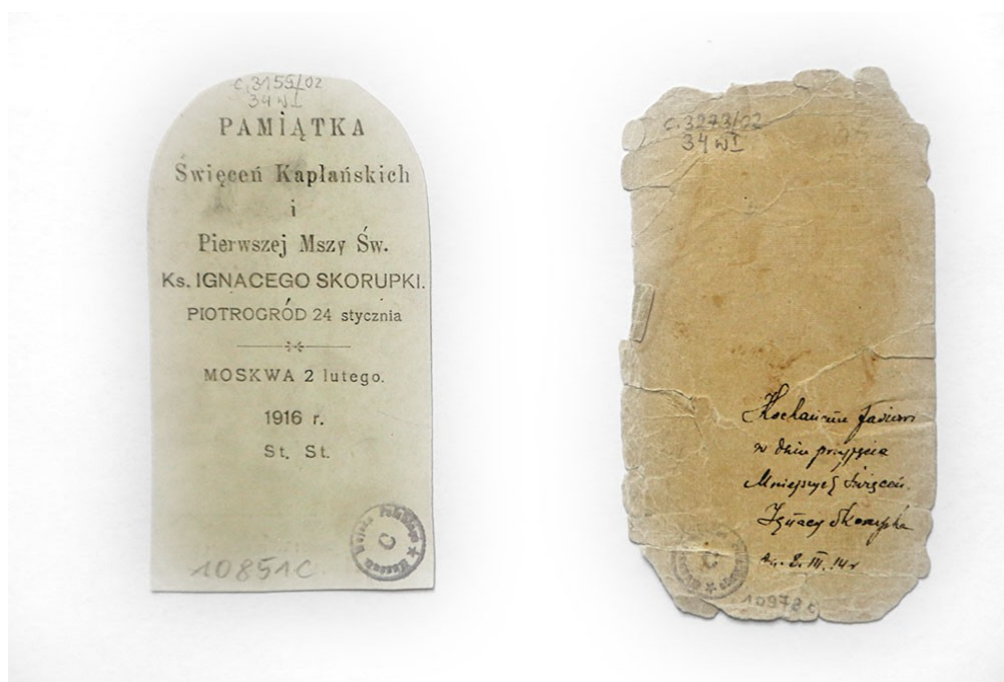 c.3155/02
34 w I
PAMIĄTKA
Święceń Kapłańskich
i
Pierwszej Mszy Św.
Ks. IGNACEGO SKORUPKI.
PIOTROGRÓD 24 stycznia
MOSKWA 2 lutego.
1916 r.
St. St.
Muzeum Wojska Polskiego
C
10851C
c.3273/02
34 w I
w dniu przyjęcia
Mniejszych Święceń.
Ignacy Skorupka
2. III. 14 r
C
10978 c